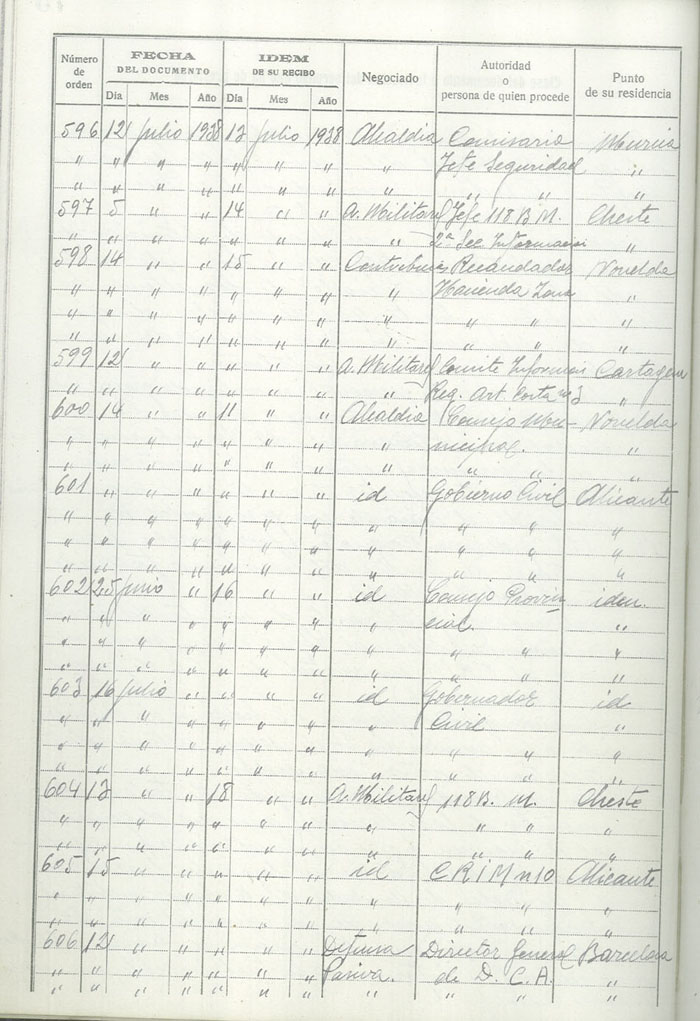 Número de orden | FECHA DEL DOCUMENTO | IDEM DE SU RECIBO | Negociado | Autoridad o persona de quien procede | Punto de su residencia
Día | Mes | Año | Día | Mes | Año
596 12 Julio 1938 13 Julio 1938 Alcaldia Comisaria Murcia
" " " " " " " " Jefe Seguridad "
" " " " " " " " " " "
597 5 " " 14 " " A. Militares Jefe 118 B. M. Cheste
" " " " " " " " 2ª Sec Informacion "
598 14 " " 15 " " Recaudador Novelda
" " " " " " " " Hacienda Zona "
" " " " " " " " " " "
" " " " " " " " " " "
599 12 " " " " " A. Militares Comite Informacion Cartagena
" " " " " " " " Reg. Art. Costa nº 3 "
600 14 " " 11 " " Alcaldia Consejo Mu- Novelda
" " " " " " " " nicipal. "
" " " " " " " " " " "
601 " " " " " " id Gobierno Civil Alicante
" " " " " " " " " " "
" " " " " " " " " " "
" " " " " " " " " " "
602 25 Junio " 16 " " id Consejo Provin iden.
" " " " " " " " cial. "
" " " " " " " " " " "
" " " " " " " " " " "
603 16 Julio " " " " id Gobernador id
" " " " " " " " Civil "
" " " " " " " " " " "
" " " " " " " " " " "
604 13 " " 18 " " A. Militares 118 B. M. Cheste
" " " " " " " " " " "
" " " " " " " " " " "
605 15 " " " " " id C R I M nº 10 Alicante
" " " " " " " " " " "
" " " " " " " " " " "
606 12 " " " " " Defensa Director General Barcelona
" " " " " " " Pasiva. de D. C. A. "
" " " " " " " " " " "